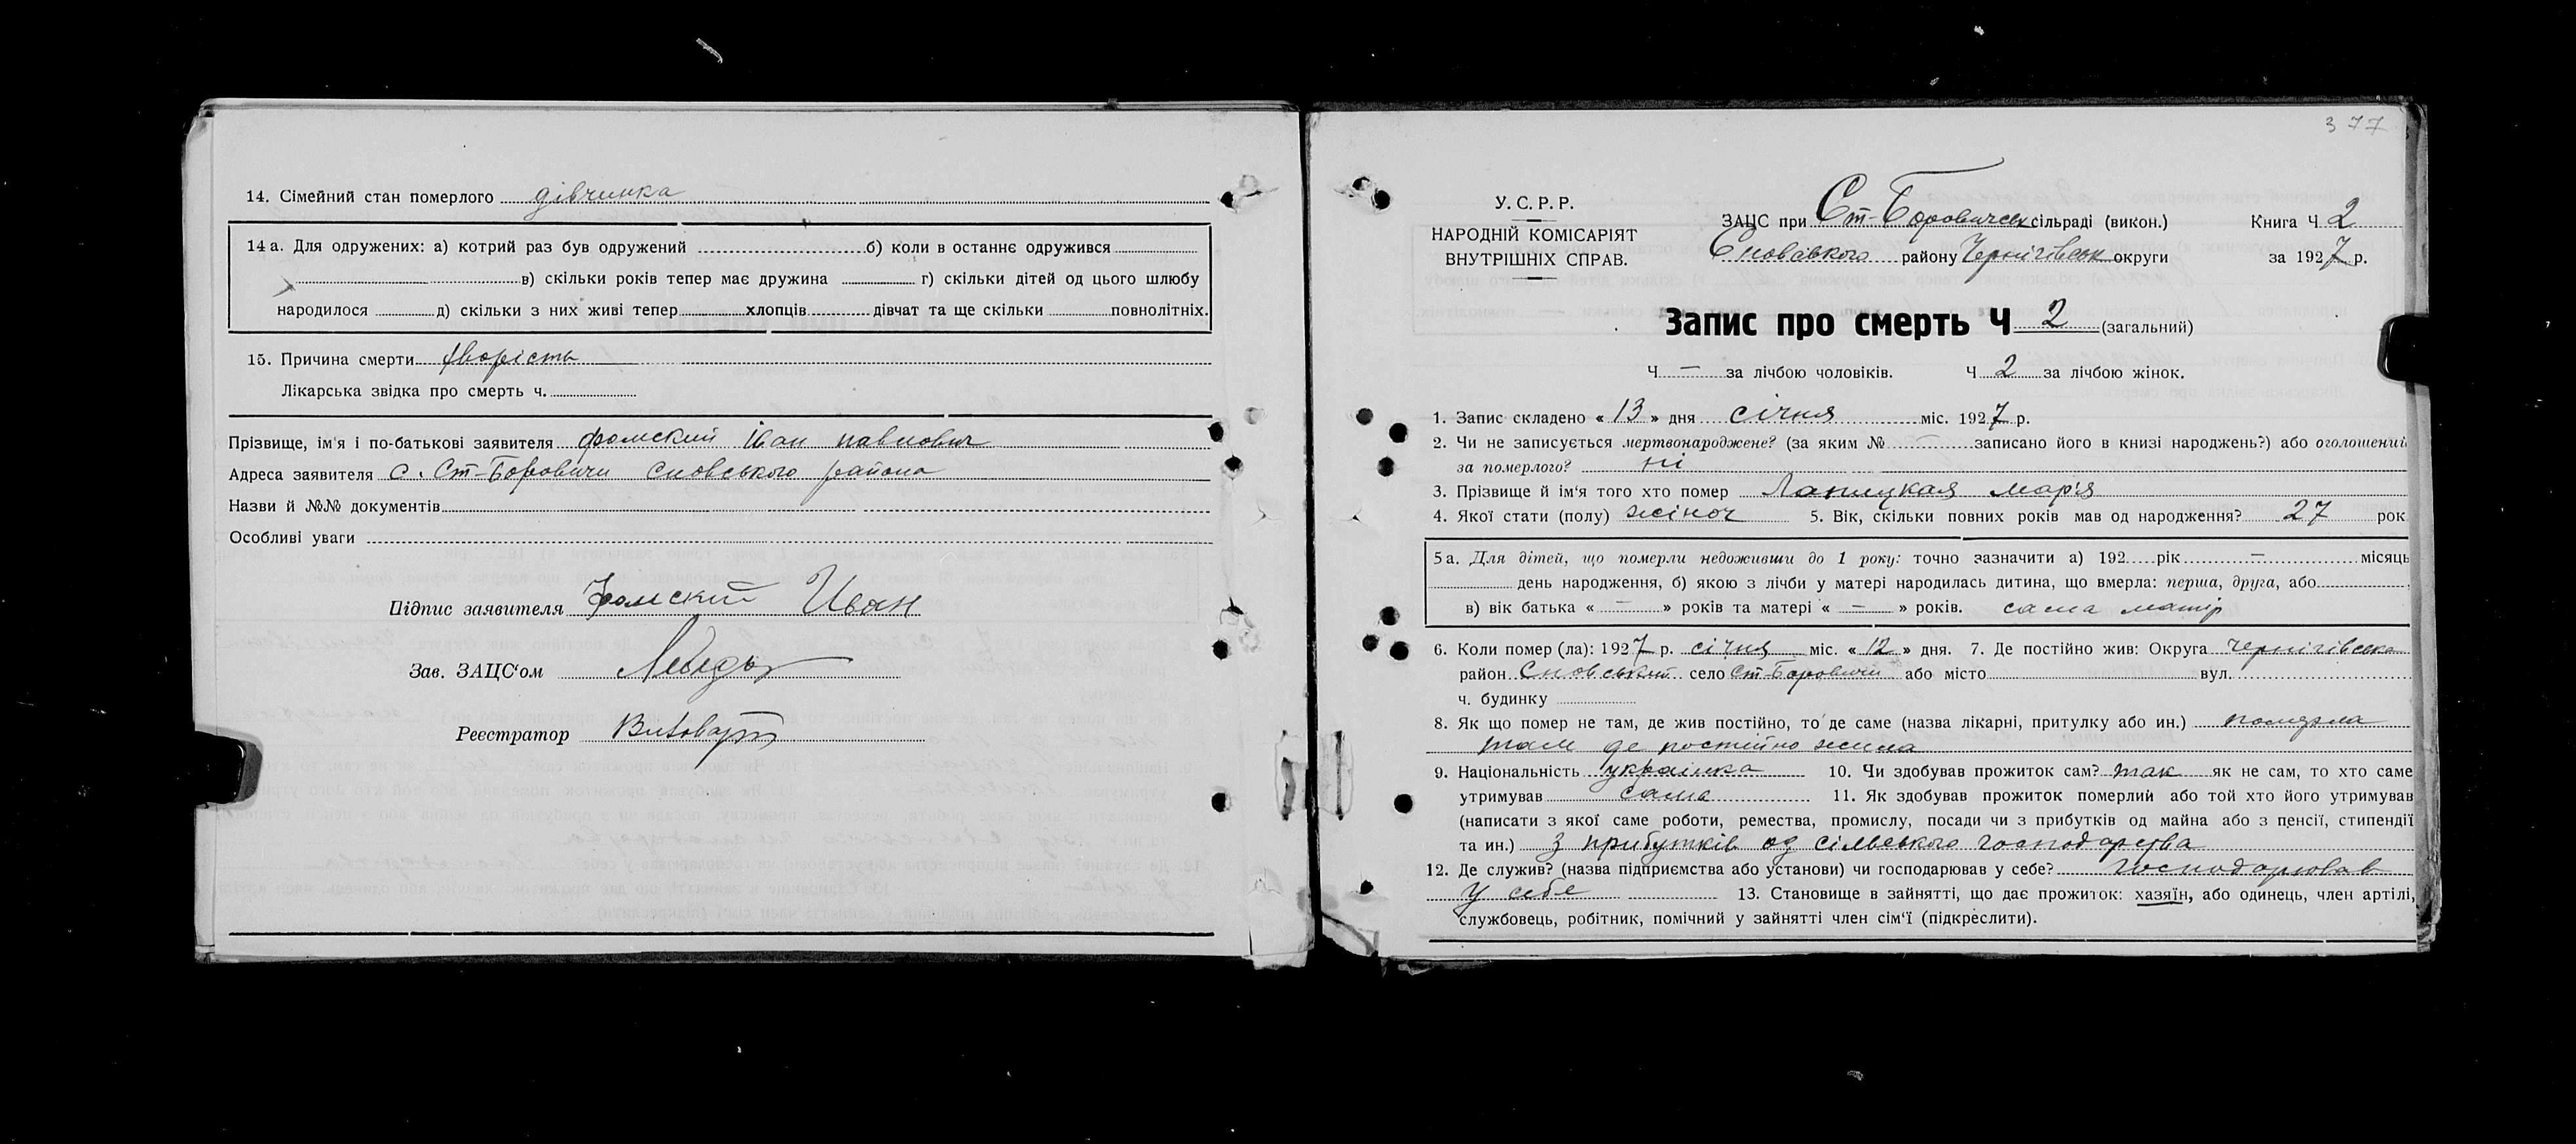 14. Сімейний стан померлого дівчинка
14 а. Для одружених: а) котрий раз був одружений б) коли в останнє одружився
в) скільки років тепер має дружина г) скільки дітей од цього шлюбу
народилося д) скільки з них живі тепер хлопців дівчат та ще скільки повнолітніх.
15. Причина смерти хворість
Лікарська звідка про смерть ч.
Прізвище, ім'я і по-батькові заявителя Фомский Іван павлович
Адреса заявителя с. Ст-Боровичи Сновського района
Назви й №№ документів
Особливі уваги
Підпис заявителя Фомский Иван
Зав. ЗАЦС'ом
Реєстратор
377
У. С. Р. Р.
НАРОДНІЙ КОМІСАРІЯТ
ВНУТРІШНІХ СПРАВ.
ЗАЦС при Ст-Боровичск сільраді (викон.)
Сновського району Чернігівськ округи
Книга Ч 2
за 1927 р.
Запис про смерть Ч 2 (загальний)
Ч — за лічбою чоловіків. Ч 2 за лічбою жінок.
1. Запис складено « 13 » дня січня міс. 1927 р.
2. Чи не записується мертвонароджене? (за яким № — записано його в книзі народжень?) або оголошений
за померлого? ні
3. Прізвище й ім'я того хто помер Лапицкая мар'я
4. Якої стати (полу) жіноч 5. Вік, скільки повних років мав од народження? 27 рок
5 а. Для дітей, що померли недоживши до 1 року: точно зазначити а) 192 рік — місяць
день народження, б) якою з лічби у матері народилась дитина, що вмерла: перша, друга, або
в) вік батька « — » років та матері « — » років. сама матір
6. Коли помер (ла): 1927 р. січня міс. « 12 » дня. 7. Де постійно жив: Округа Чернігівська
район Сновський село Ст-Боровичи або місто вул.
ч. будинку
8. Як що помер не там, де жив постійно, то де саме (назва лікарні, притулку або ин.) померла
там де постійно жила
9. Національність українка 10. Чи здобував прожиток сам? так як не сам, то хто саме
утримував сама 11. Як здобував прожиток померлий або той хто його утримував
(написати з якої саме роботи, ремества, промислу, посади чи з прибутків од майна або з пенсії, стипендії
та ин.) з прибутків од сільського господарства
12. Де служив? (назва підприємства або установи) чи господарював у себе? господарював
у себе 13. Становище в зайнятті, що дає прожиток: хазяїн, або одинець, член артілі,
службовець, робітник, помічний у зайнятті член сім'ї (підкреслити).